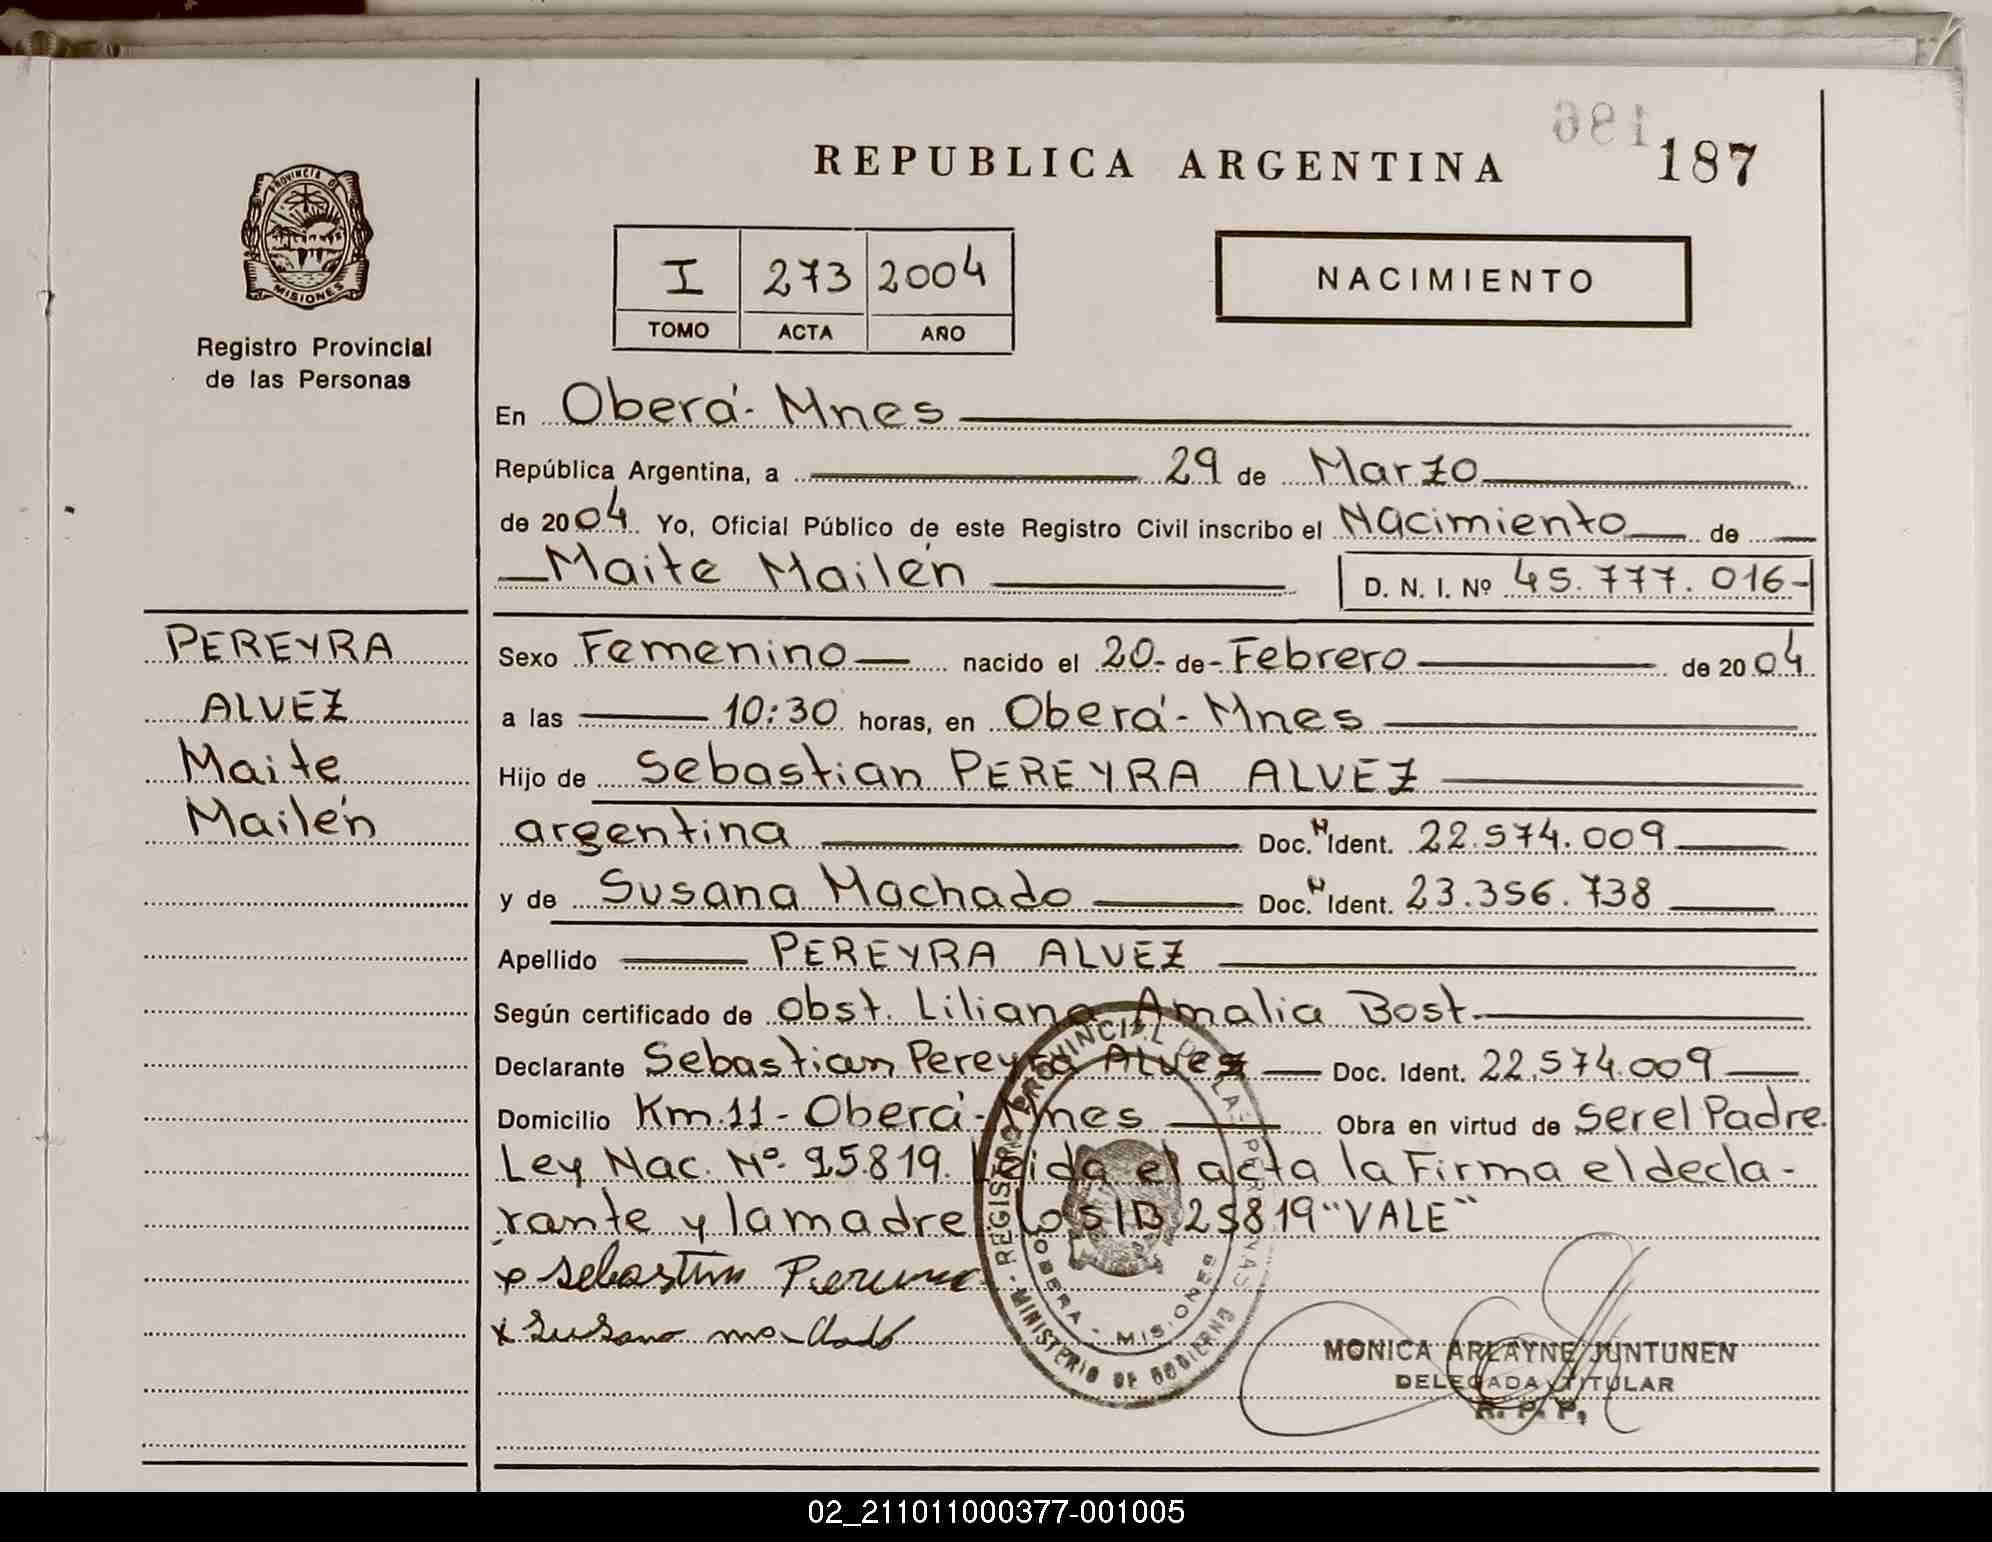 186
187
REPUBLICA ARGENTINA
PROVINCIA DE
MISIONES
Registro Provincial
de las Personas
I 273 2004
TOMO ACTA AÑO
NACIMIENTO
En Oberá - Mnes
República Argentina, a 29 de Marzo
de 2004 Yo, Oficial Público de este Registro Civil inscribo el Nacimiento de
Maite Mailén D. N. I. Nº 45.777.016-
PEREYRA
ALVEZ
Maite
Mailén
Sexo Femenino nacido el 20- de- Febrero de 2004
a las 10:30 horas, en Oberá - Mnes
Hijo de Sebastian PEREYRA ALVEZ
argentina Doc. N Ident. 22.574.009
y de Susana Machado Doc. N Ident. 23.356.738
Apellido PEREYRA ALVEZ
Según certificado de Obst. Liliana Amalia Bost.
Declarante Sebastian Pereyra Alvez Doc. Ident. 22.574.009
Domicilio Km.11 - Oberá - Mnes Obra en virtud de Ser el Padre.
Ley Nac. Nº 25.819. Leida el acta la Firma el decla-
rante y la madre 25819 "VALE"
x Sebastian
x Susana machado
REGISTRO PROVINCIAL DE LAS PERSONAS
OBERA - MISIONES
MINISTERIO DE GOBIERNO
MONICA ARLAYNE JUNTUNEN
DELEGADA TITULAR
R. P. P.
02_211011000377-001005